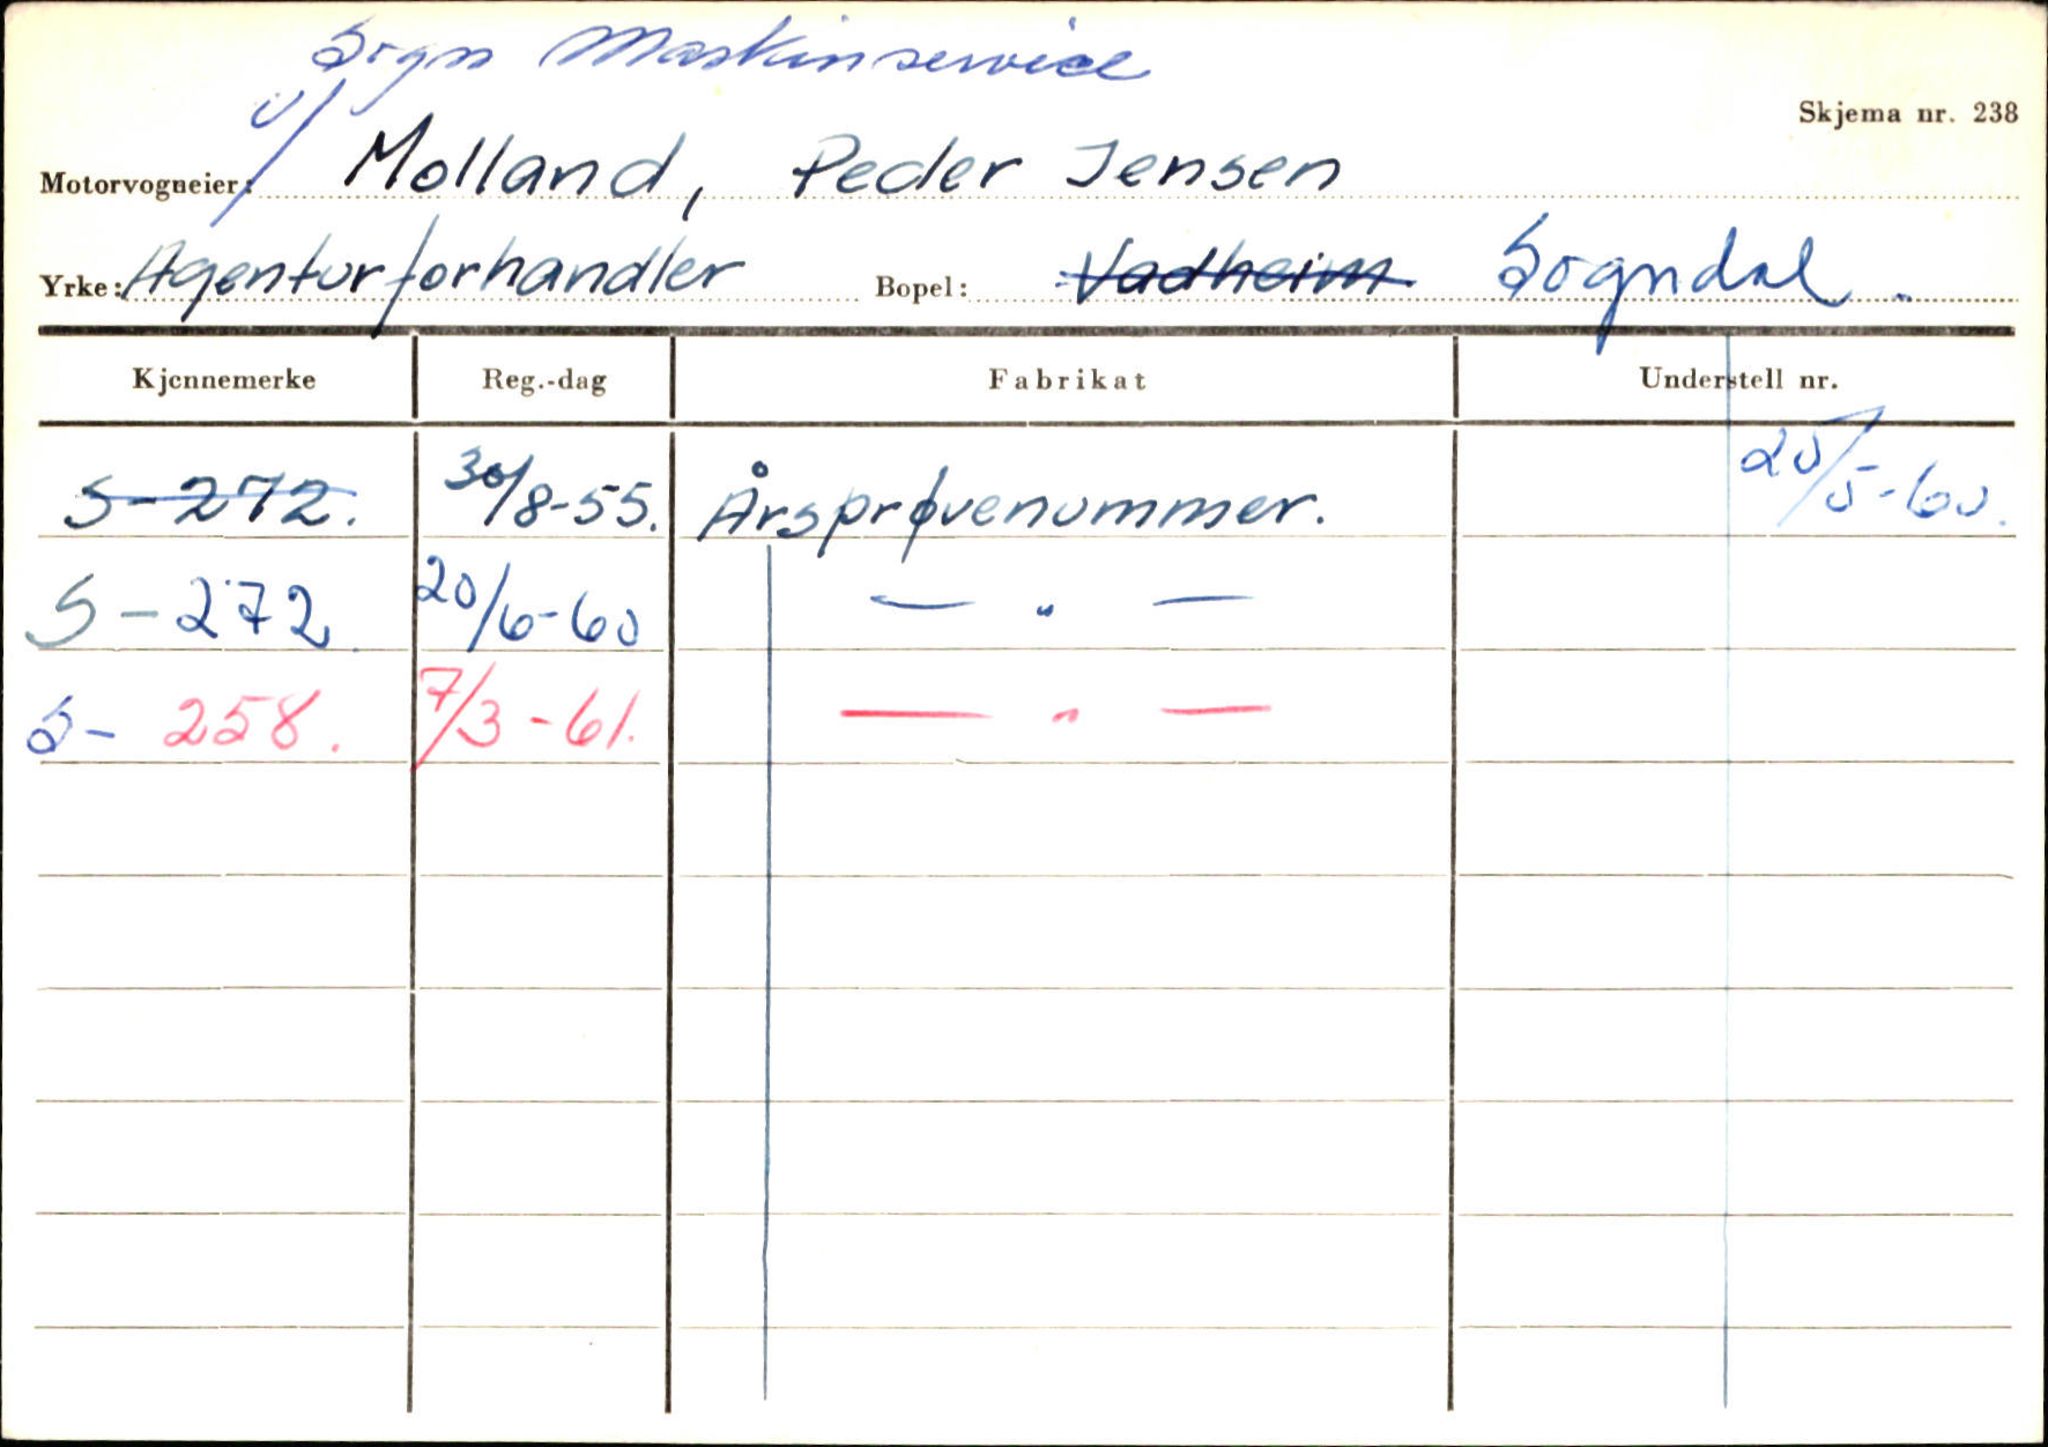 Sogn Maskinservice
v/
Skjema nr. 238
Motorvogneier: Molland, Peder Jensen
Yrke: Agenturforhandler Bopel: Vadheim Sogndal.
Kjennemerke Reg.-dag Fabrikat Understell nr.
S-272. 30/8-55. Årsprøvenummer. 20/5-60.
S-272. 20/6-60 — " —
S-258. 7/3-61. — " —